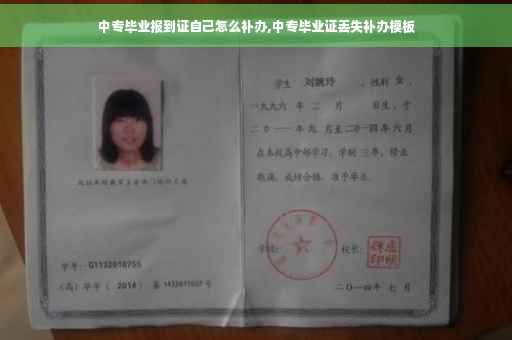 中专毕业报到证自己怎么补办,中专毕业证丢失补办模板
学生 刘婉玲 ，性别 女 ，
一九九六 年 二 月 日生，于
二〇一一 年 九 月至 二〇一四 年 六 月
在本校高中部学习，学制 三 年，修业
期满，成绩合格，准予毕业。
学校：
校长：
学号：G1132010755
（高）毕字（ 2014 ）第 1432011027 号
二〇一四年 七 月